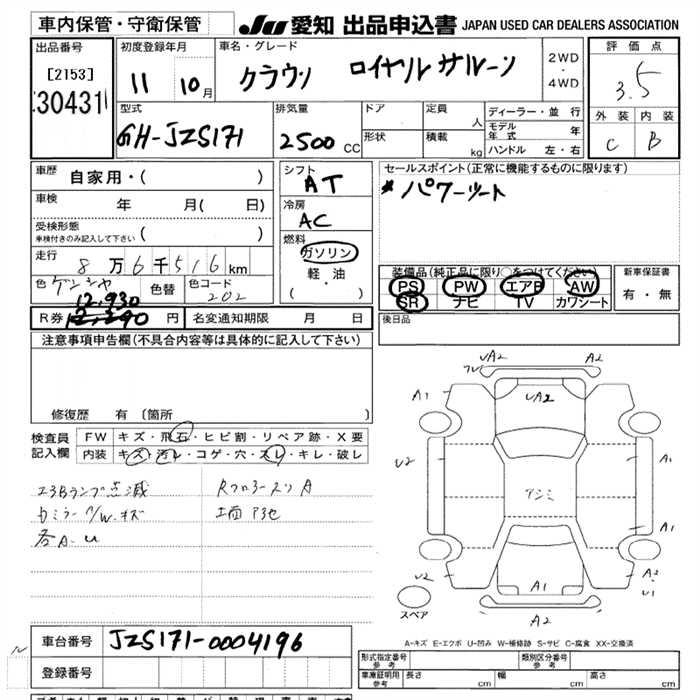 車内保管・守衛保管
JU 愛知 出品申込書 JAPAN USED CAR DEALERS ASSOCIATION
出品番号
[2153]
30431
初度登録年月
11 10月
車名・グレード
クラウン ロイヤルサルーン
2WD
・
4WD
評価点
3.5
外装 内装
C B
型式
GH-JZS171
排気量
2500 CC
ドア
定員
人
形状
積載
kg
ディーラー・並行
モデル年式 年
ハンドル 左・右
車歴
自家用・( )
車検 年 月( 日)
受検形態
車検付きのみ記入して下さい ( )
走行
8万6千516km
色
色替
色コード
202
シフト
AT
冷房
AC
燃料
ガソリン
軽・油
( ・ )
セールスポイント(正常に機能するものに限ります)
* パワーシート
装備品(純正品に限り○をつけてください)
PS PW エアB AW
SR ナビ TV カワシート
新車保証書
有・無
後日品
12,930
R券 12,290 円
名変通知期限 月 日
注意事項申告欄(不具合内容等は具体的に記入して下さい)
修復歴 有 〔箇所
検査員
記入欄
FW キズ・飛石・ヒビ割・リペア跡・X要
内装 キズ・汚レ・コゲ・穴・スレ・キレ・破レ
エアBランプ点滅
各A.U
UA2 A2
A1 UA2 A1
U2 A1
A1
A1
U2 A2
U1
A2
スペア
A-キズ E-エクボ U-凹み W-補修跡 S-サビ C-腐食 XX-交換済
車台番号 JZS171-0004196
登録番号
形式指定番号
参考
類別区分番号
参考
車庫証明用
参考
長さ cm 幅 cm 高さ cm